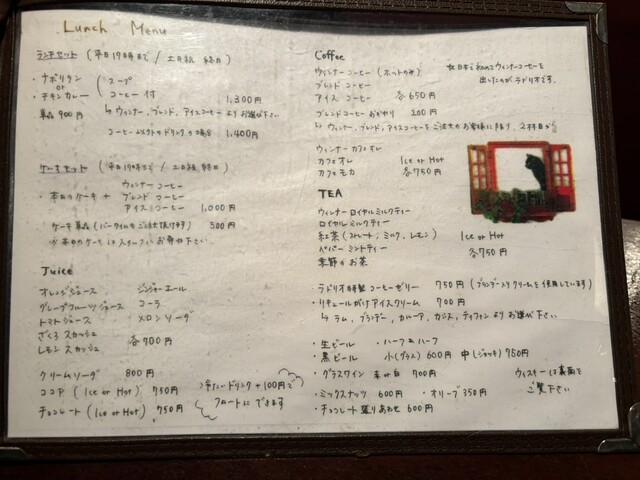 Lunch Menu
ランチセット (平日19時まで / 土日祝 終日)
・ナポリタン
or
・チキンカレー
スープ
コーヒー付
1,300円
単品 900円
↳ ウィンナー、ブレンド、アイスコーヒー よりお選び下さい
コーヒー以外のドリンクの場合 1,400円
ケーキセット (平日19時まで / 土日祝 終日)
ウィンナーコーヒー
・本日のケーキ + ブレンドコーヒー
アイスコーヒー 1,000円
ケーキ単品 (バータイムもご注文頂けます) 500円
※本日のケーキはスタッフにお尋ね下さい
Juice
オレンジジュース ジンジャーエール
グレープフルーツジュース コーラ
トマトジュース メロンソーダ
ざくろスカッシュ
レモンスカッシュ 各700円
クリームソーダ 800円
ココア (Ice or Hot) 750円
チョコレート (Ice or Hot) 750円
冷たいドリンク +100円で
フロートにできます
Coffee
ウィンナーコーヒー (ホットのみ)
ブレンドコーヒー
アイスコーヒー 各650円
※日本で初めてウィンナーコーヒーを
出したのがラドリオです。
ブレンドコーヒーおかわり 200円
↳ ウィンナー、ブレンド、アイスコーヒーをご注文のお客様に限り、2杯目から
ウィンナーカフェオレ
カフェオレ Ice or Hot
カフェモカ 各750円
TEA
ウィンナーロイヤルミルクティー
ロイヤルミルクティー
紅茶 (ストレート、ミルク、レモン) Ice or Hot
ペパーミントティー 各750円
季節のお茶
・ラドリオ特製コーヒーゼリー 750円 (ブランデー入りクリームを使用しています)
・リキュールがけアイスクリーム 700円
↳ ラム、ブランデー、カルーア、カシス、ティフィンよりお選び下さい
・生ビール ・ハーフ&ハーフ
・黒ビール 小(グラス) 600円 中(ジョッキ) 750円
・グラスワイン 赤or白 700円
ウィスキーは裏面を
ご覧下さい
・ミックスナッツ 600円 ・オリーブ 350円
・チョコレート盛りあわせ 600円